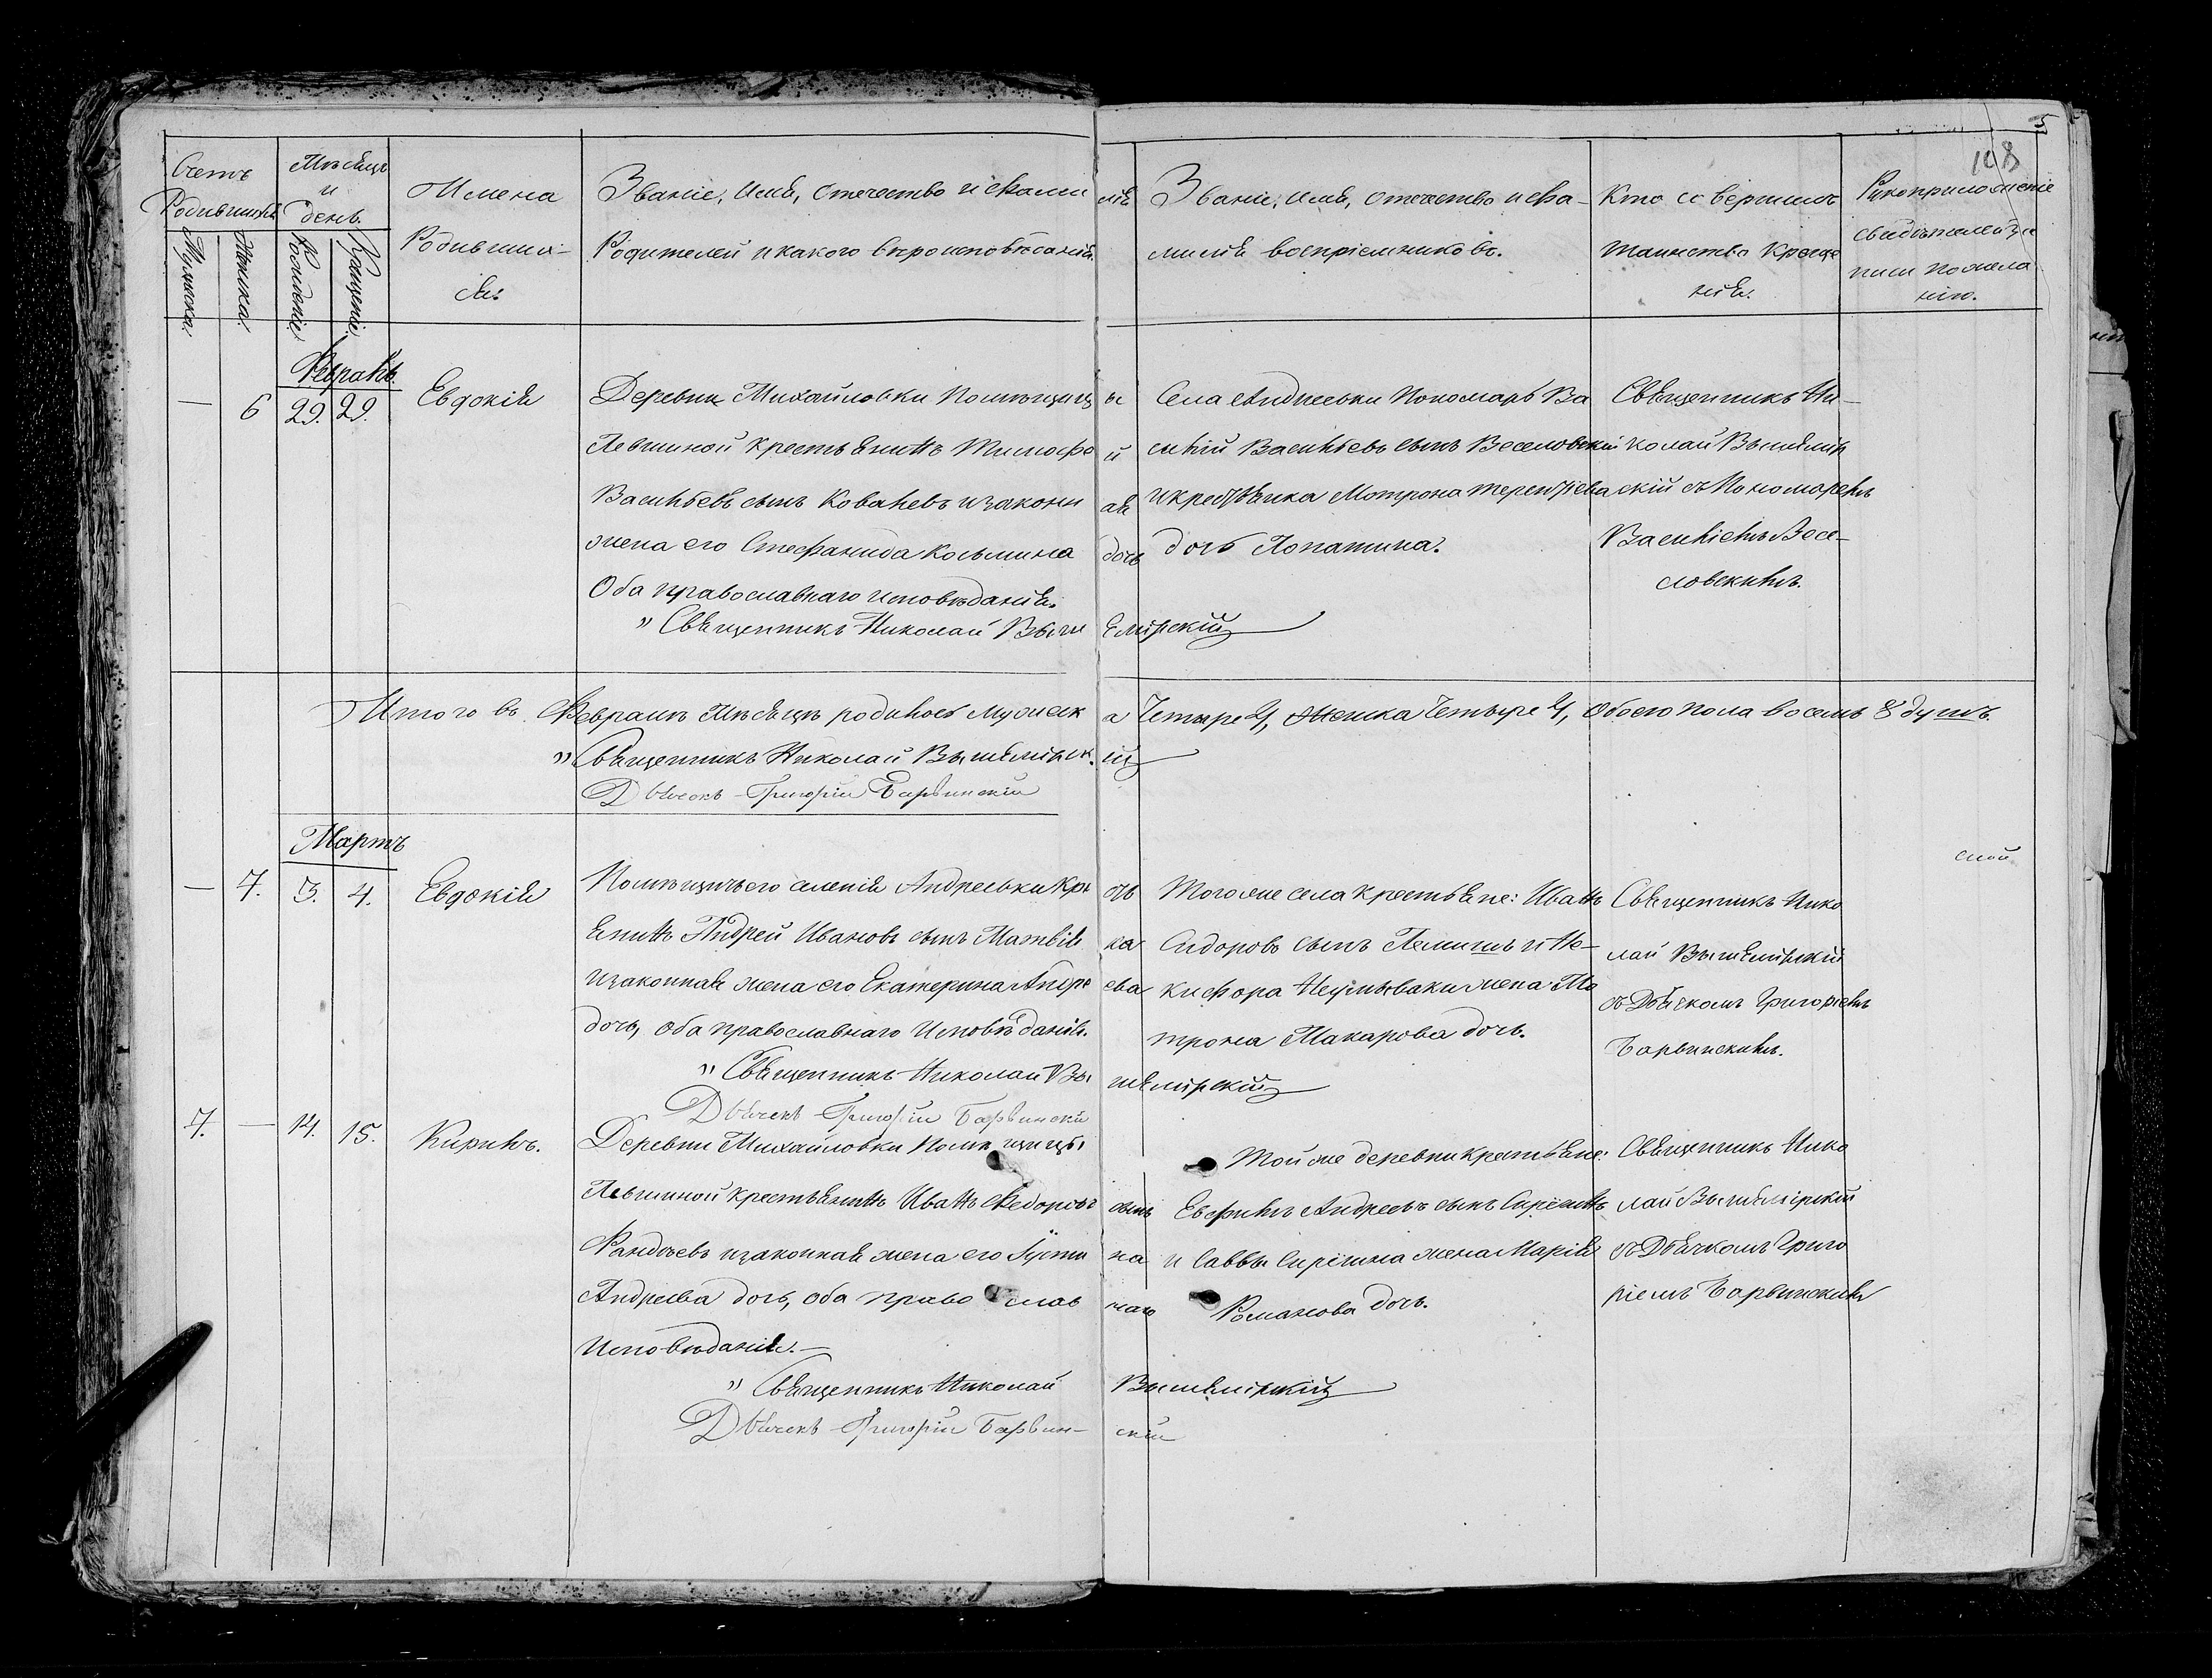 5
108
Счетъ Родившихся
Мужеска.
Женска.
Мѣсяцъ и день.
Рожденія
Крещенія
Имена Родившихся.
Званіе, имя, отечество и фамилія
Родителей и какого вѣроисповѣданія.
Званіе, имя, отечество и фамилія воспріемниковъ.
Кто совершилъ таинство крещенія.
Рукоприложеніе свидѣтелей записи по желанію.
Февраль.
— 6 29. 29. Евдокія
Деревни Михайловки помѣщицы
Левшиной крестьянинъ Тимофей
Васильевъ сынъ Ковалевъ и законная
жена его Стефанида Косьмина дочь
Оба православнаго исповѣданія.
" Священникъ Николай Вышемірскій
Села Андреевки Пономарь Ва
силій Васильевъ сынъ Веселовскій
и крестьянка Мотрона Терентіева
дочь Лопатина.
Священникъ Ни-
колай Вышемір
скій съ Пономоремъ
Василіемъ Весе-
ловскимъ.
Итого въ Февралѣ Мѣсяцѣ родилось мужеска Четыре 4, женска Четыре 4, обоего пола восемь 8 душъ.
" Священникъ Николай Вышемірскій
Дьячекъ Григорій Барвинскій
Мартъ
— 7. 3. 4. Евдокія
Помѣщичьего селенія Андреевки Крсть
янинъ Андрей Ивановъ сынъ Матвійка
и законная жена его Екатерина Андреева
дочь, оба православнаго исповѣданія.
" Священникъ Николай Вышемірскій
Дьячекъ Григорій Барвинскій
Того же села крестьяне: Иванъ
Сидоровъ сынъ Лемишъ и Не-
кифора жена Мо
трона Макарова дочь.
Священникъ Нико
лай Вышемірскій
съ Дьячкомъ Григоріемъ
Барвинскимъ.
ской
7. — 14. 15. Кирилъ.
Деревни Михайловки помѣщицы
Левшиной крестьянинъ Иванъ Федоровъ сынъ
и законная жена его Іустина
Андреева дочь, оба православнаго
исповѣданія.—
" Священникъ Николай Вышемірскій
Дьячекъ Григорій Барвин-скій
Той же деревни крестьяне:
Евфимъ Андреевъ сынъ
и Саввы жена Марія
Романова дочь.
Священникъ Нико
лай Вышемірскій
съ Дьячкомъ Григо
ріемъ Барвинскимъ